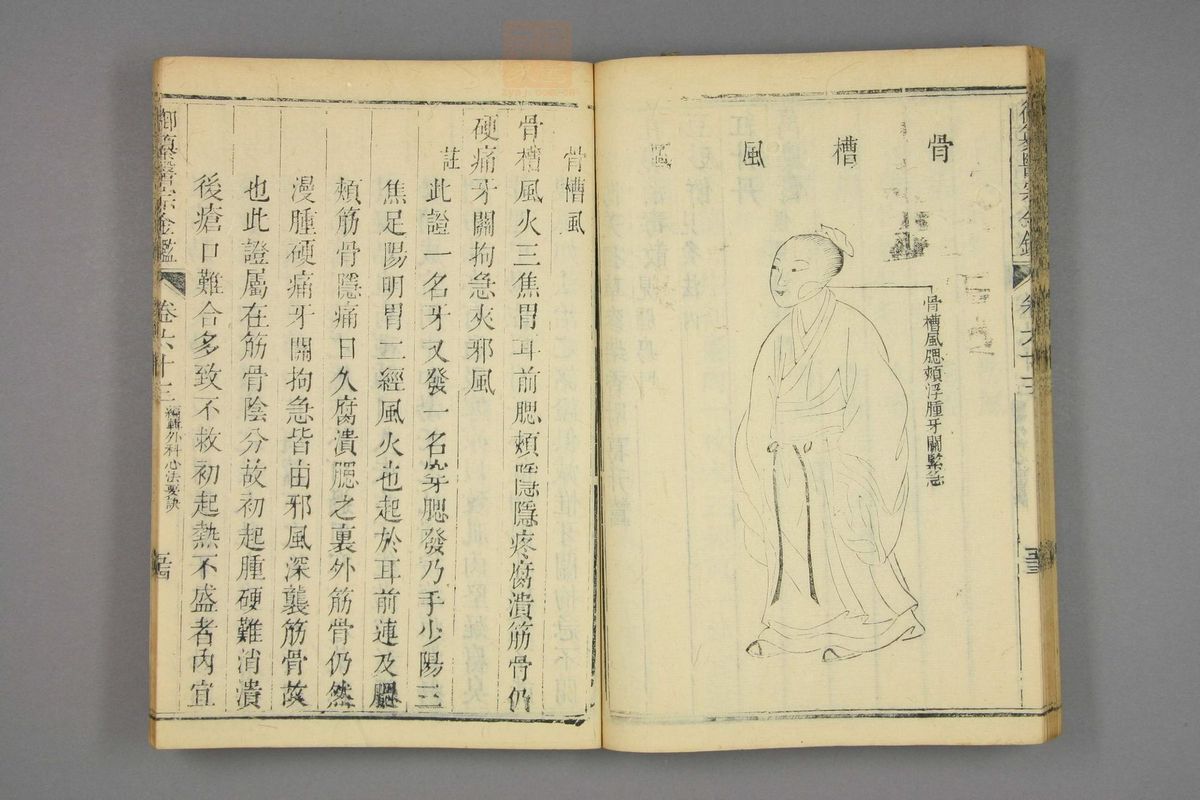 骨槽風
骨槽風腮頰浮腫牙關緊急
骨槽風
骨槽風火三焦胃耳前腮頰隱隱疼腐潰筋骨仍
硬痛牙關拘急夾邪風
註此證一名牙叉發一名穿腮發乃手少陽三
焦足陽明胃二經風火也起於耳前連及腮
頰筋骨隱痛日久腐潰腮之裏外筋骨仍然
漫腫硬痛牙關拘急皆由邪風深襲筋骨故
也此證屬在筋骨陰分故初起腫硬難消潰
後瘡口難合多致不救初起熱不盛者內宜
御纂醫宗金鑑 卷六十三 編輯外科心法要訣